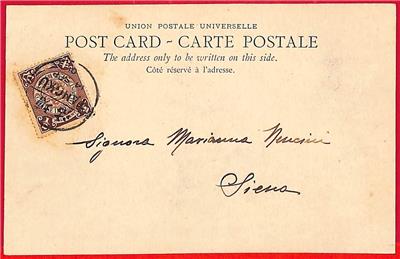 UNION POSTALE UNIVERSELLE
POST CARD - CARTE POSTALE
The address only to be written on this side.
Côté réservé à l'adresse.
Signora Marianna
Siena